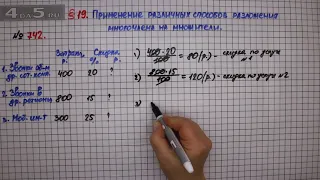 4or5.ru
§ 19. Применение различных способов разложения
многочлена на множители.
№ 742.
Затраты, р. Скидка, %
1. Звонки або-м др. сот. комп. 400 20 ?
2. Звонки в др. регионы 800 15 ?
3. Моб. ин-т 300 25 ?
1) 400·20/100 = 80 (р.) - скидка по услуге №1
2) 800·15/100 = 120 (р.) - скидка по услуге №2
3)